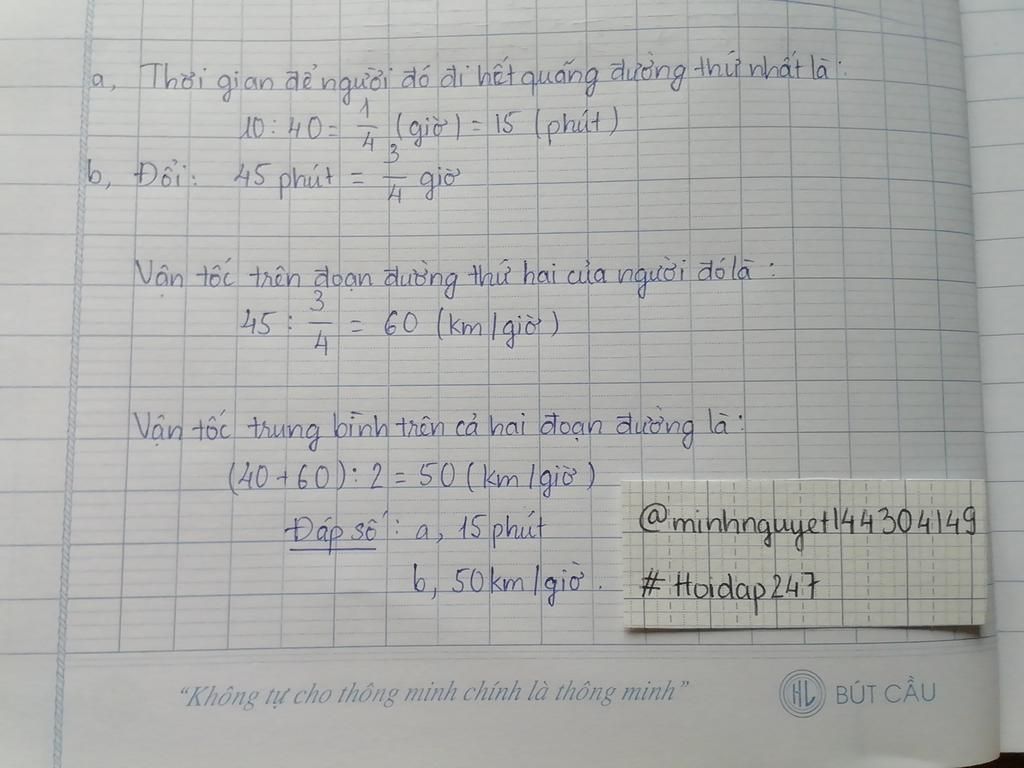 a, Thời gian để người đó đi hết quãng đường thứ nhất là:
10 : 40 = 1/4 (giờ) = 15 (phút)
b, Đổi: 45 phút = 3/4 giờ
Vận tốc trên đoạn đường thứ hai của người đó là:
45 : 3/4 = 60 (km/giờ)
Vận tốc trung bình trên cả hai đoạn đường là:
(40 + 60) : 2 = 50 (km/giờ)
Đáp số: a, 15 phút
b, 50 km/giờ.
@minhnguyet144304149
#Hoidap247
"Không tự cho thông minh chính là thông minh"
HL BÚT CẦU